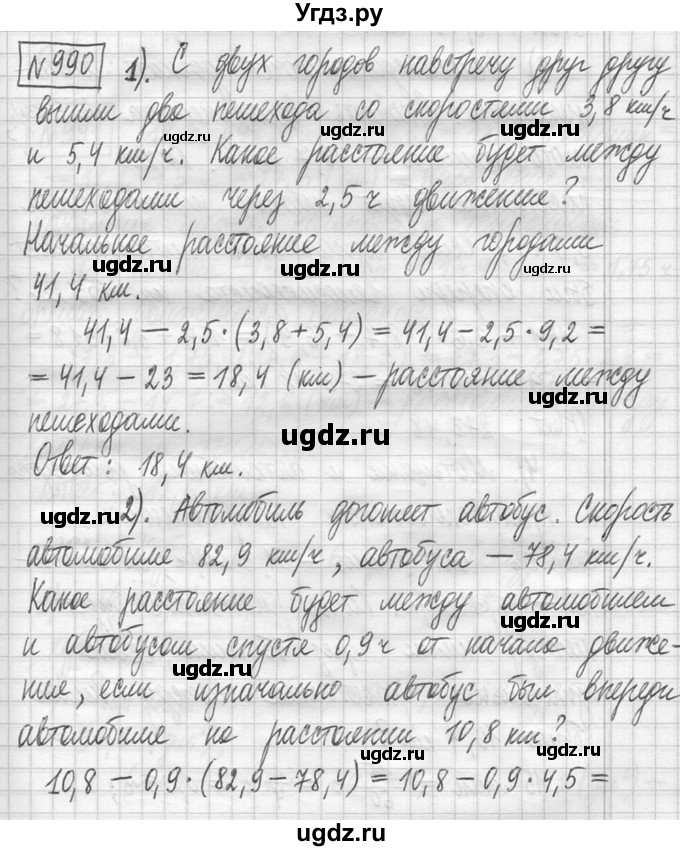 Угдз.ру
N 990 1). С двух городов навстречу друг другу
вышли два пешехода со скоростями 3,8 км/ч
ugdz.ru ugdz.ru
и 5,4 км/ч. Какое расстояние будет между
ugdz.ru
пешеходами через 2,5 ч движения?
Начальное расстояние между городами
ugdz.ru ugdz.ru ugdz.ru
41,4 км.
41,4 — 2,5·(3,8 + 5,4) = 41,4 — 2,5·9,2 =
= 41,4 — 23 = 18,4 (км) — расстояние между
ugdz.ru
пешеходами.
ugdz.ru
Ответ: 18,4 км.
ugdz.ru
2). Автомобиль догоняет автобус. Скорость
автомобиля 82,9 км/ч, автобуса — 78,4 км/ч.
ugdz.ru
Какое расстояние будет между автомобилем
и автобусом спустя 0,9 ч от начала движе-
ugdz.ru
ния, если изначально автобус был впереди
ugdz.ru
автомобиля на расстоянии 10,8 км?
ugdz.ru ugdz.ru
10,8 — 0,9·(82,9 — 78,4) = 10,8 — 0,9·4,5 =
ugdz.ru